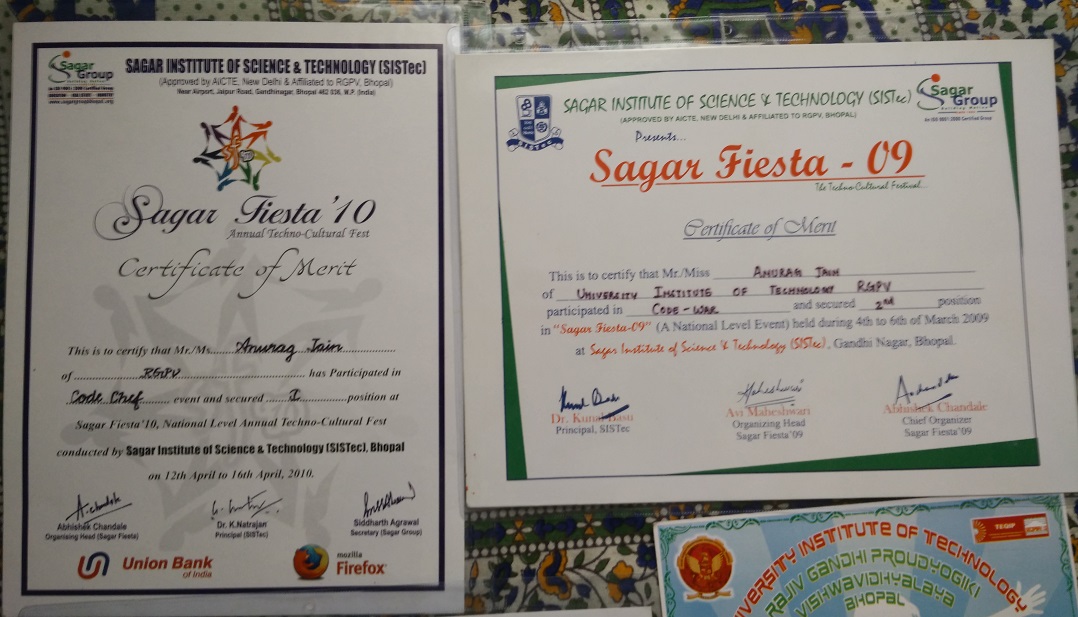 Sagar
Group
SAGAR INSTITUTE OF SCIENCE & TECHNOLOGY (SISTec)
(Approved by AICTE, New Delhi & Affiliated to RGPV, Bhopal)
Near Airport, Jaipur Road, Gandhinagar, Bhopal 462 036, M.P. (India)
Sagar Fiesta'10
Annual Techno-Cultural Fest
Certificate of Merit
This is to certify that Mr./Ms. Anurag Jain
of RGPV has Participated in
Code Chef event and secured I position at
Sagar Fiesta'10, National Level Annual Techno-Cultural Fest
conducted by Sagar Institute of Science & Technology (SISTec), Bhopal
on 12th April to 16th April, 2010.
Abhishek Chandale
Organising Head (Sagar Fiesta)
Dr. K.Natrajan
Principal (SISTec)
Siddharth Agrawal
Secretary (Sagar Group)
Union Bank
of India
mozilla
Firefox
SISTec
SAGAR INSTITUTE OF SCIENCE & TECHNOLOGY (SISTec)
(APPROVED BY AICTE, NEW DELHI & AFFILIATED TO RGPV, BHOPAL)
Sagar
Group
An ISO 9001:2000 Certified Group
Presents...
Sagar Fiesta - 09
The Techno-Cultural Festival...
Certificate of Merit
This is to certify that Mr./Miss ANURAG JAIN
of UNIVERSITY INSTITUTE OF TECHNOLOGY RGPV
participated in CODE-WAR and secured 2nd position
in "Sagar Fiesta-09" (A National Level Event) held during 4th to 6th of March 2009
at Sagar Institute of Science & Technology (SISTec), Gandhi Nagar, Bhopal.
Dr. Kunal
Principal, SISTec
Avi Maheshwari
Organizing Head
Sagar Fiesta'09
Abhishek Chandale
Chief Organizer
Sagar Fiesta'09
VERSITY INSTITUTE OF TECHNOLOGY
RAJIV GANDHI PROUDYOGIKI
VISHWAVIDHYALAYA
BHOPAL
TEQIP